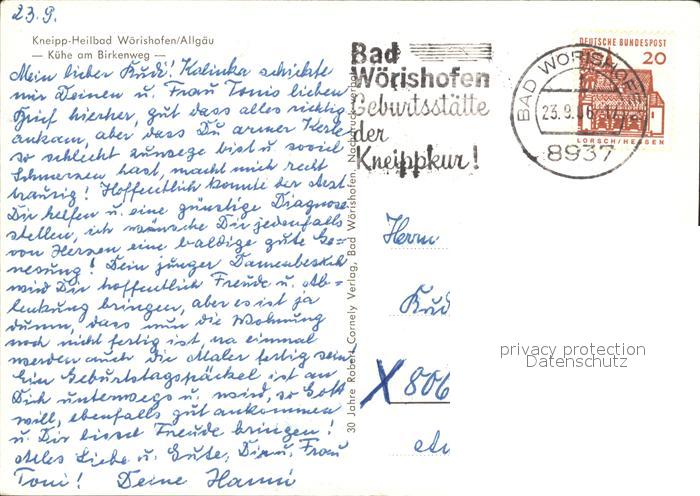 23.9.
Kneipp-Heilbad Wörishofen/Allgäu
— Kühe am Birkenweg —
Mein lieber Rudi! Kalinka schickte
mir Deinen u. Frau Tonis lieben
Brief hierher, gut dass alles richtig
ankam, aber dass Du armer Kerle
so schlecht zuwege bist u. soviel
Schmerzen hast, macht mich recht
traurig! Hoffentlich konnte der Arzt
Dir helfen u. eine günstige Diagnose
stellen, ich wünsche Dir jedenfalls
von Herzen eine baldige gute Ge-
nesung! Dein junger Damenbesuch
wird Dir hoffentlich Freude u. Ab-
lenkung bringen, aber es ist ja
dumm, dass nun die Wohnung
noch nicht fertig ist, na einmal
werden auch die Maler fertig sein
Ein Geburtstagspäckel ist an
Dich unterwegs u. wird, so Gott
will, ebenfalls gut ankommen
u. Dir bissel Freude bringen!
Alles Liebe u. Gute, Dir u. Frau
Toni! Deine Hanni
30 Jahre Robert Cornely Verlag, Bad Wörishofen, Nachdruck verboten
Bad
Wörishofen
Geburtsstätte
der
Kneippkur!
BAD WÖRISHOFEN
23.9.66
8937
DEUTSCHE BUNDESPOST
20
LORSCH/HESSEN
Herrn
Rud
X 806
privacy protection
Datenschutz